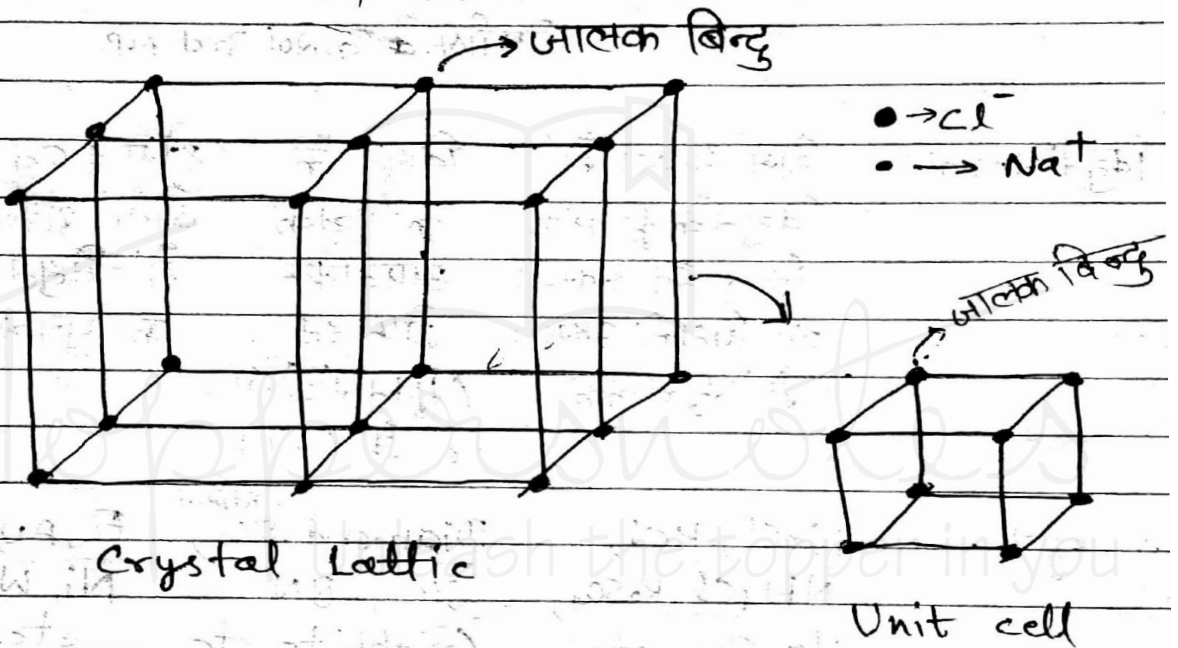 → जालक बिन्दु
● → Cl⁻
• → Na⁺
जालक बिन्दु
Crystal Lattic
Unit cell
Toppersnotes
Unleash the topper in you